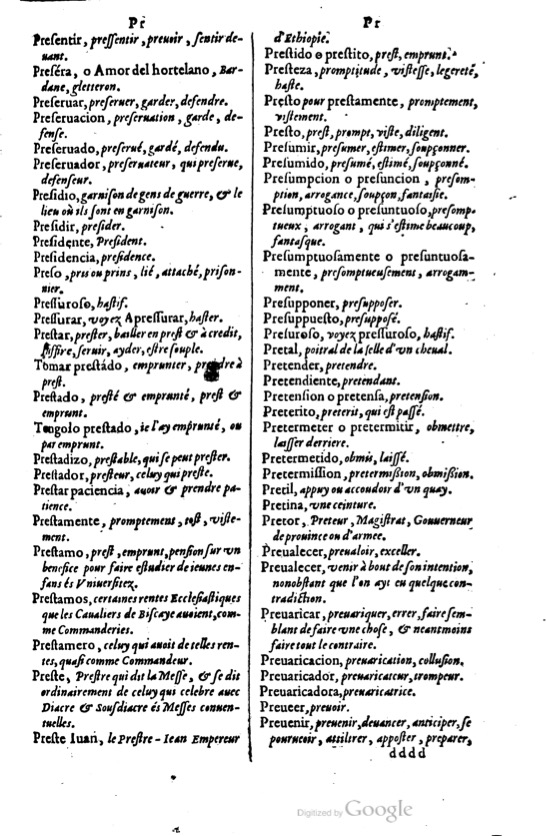 Pr
Preſentir, preſſentir, preuoir, ſentir de-
uant.
Preſéra, o Amor del hortelano, Bar-
dane, gletteron.
Preſeruar, preſeruer, garder, defendre.
Preſeruacion, preſeruation, garde, de-
fenſe.
Preſeruado, preſerué, gardé, defendu.
Preſeruador, preſeruateur, qui preſerue,
defenſeur.
Preſidio, garniſon de gens de guerre, & le
lieu où ils ſont en garniſon.
Preſidir, preſider.
Preſidente, Preſident.
Preſidencia, preſidence.
Preſo, pris ou prins, lié, attaché, priſon-
nier.
Preſſuroſo, haſtif.
Preſſurar, voyez Apreſſurar, haſter.
Preſtar, preſter, bailler en preſt & à credit,
ſuffire, ſeruir, ayder, eſtre ſouple.
Tomar preſtado, emprunter, prendre à
preſt.
Preſtado, preſté & emprunté, preſt &
emprunt.
Tengolo preſtado, ie l'ay emprunté, ou
par emprunt.
Preſtadizo, preſtable, qui ſe peut preſter.
Preſtador, preſteur, celuy qui preſte.
Preſtar paciencia, auoir & prendre pa-
tience.
Preſtamente, promptement, toſt, viſte-
ment.
Preſtamo, preſt, emprunt, penſion ſur vn
benefice pour faire eſtudier de ieunes en-
fans és Vniuerſitez.
Preſtamos, certaines rentes Eccleſiaſtiques
que les Caualiers de Biſcaye auoient, com-
me Commanderies.
Preſtamero, celuy qui auoit de telles ren-
tes, quaſi comme Commandeur.
Preſte, Preſtre qui dit la Meſſe, & ſe dit
ordinairement de celuy qui celebre auec
Diacre & Sousdiacre és Meſſes conuen-
tuelles.
Preſte Iuan, le Preſtre-Iean Empereur
Pr
d'Ethiopie.
Preſtido o preſtito, preſt, emprunt.
Preſteza, promptitude, viſteſſe, legereté,
haſte.
Preſto pour preſtamente, promptement,
viſtement.
Preſto, preſt, prompt, viſte, diligent.
Preſumir, preſumer, eſtimer, ſoupçonner.
Preſumido, preſumé, eſtimé, ſoupçonné.
Preſumpcion o preſuncion, preſom-
ption, arrogance, ſoupçon, fantaiſie.
Preſumptuoſo o preſuntuoſo, preſomp-
tueux, arrogant, qui s'eſtime beaucoup,
fantaſque.
Preſumptuoſamente o preſuntuoſa-
mente, preſomptueuſement, arrogam-
ment.
Preſupponer, preſuppoſer.
Preſuppueſto, preſuppoſé.
Preſuroſo, voyez preſſuroſo, haſtif.
Pretal, poitral de la ſelle d'vn cheual.
Pretender, pretendre.
Pretendiente, pretendant.
Pretenſion o pretenſa, pretenſion.
Preterito, preterit, qui eſt paſſé.
Pretermeter o pretermitir, obmettre,
laiſſer derriere.
Pretermetido, obmis, laiſſé.
Pretermiſſion, pretermiſſion, obmiſſion.
Pretil, appuy ou accoudoir d'vn quay.
Pretina, vne ceinture.
Pretor, Preteur, Magiſtrat, Gouuerneur
de prouince ou d'armee.
Preualecer, preualoir, exceller.
Preualecer, venir à bout de ſon intention,
nonobſtant que l'on ayt eu quelque con-
tradiction.
Preuaricar, preuariquer, errer, faire ſem-
blant de faire vne choſe, & neantmoins
faire tout le contraire.
Preuaricacion, preuarication, colluſion.
Preuaricador, preuaricateur, trompeur.
Preuaricadora, preuaricatrice.
Preueer, preuoir.
Preuenir, preuenir, deuancer, anticiper, ſe
pouruoir, attiltrer, appoſter, preparer,
dddd
Digitized by Google